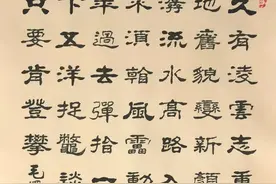 久有凌雲志重
地舊貌變新顏
潺流水高路入
不須看風雷動
年過去彈指一
下五洋捉鱉談
只要肯登攀 毛澤